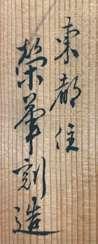 東都住
榮峯刻造